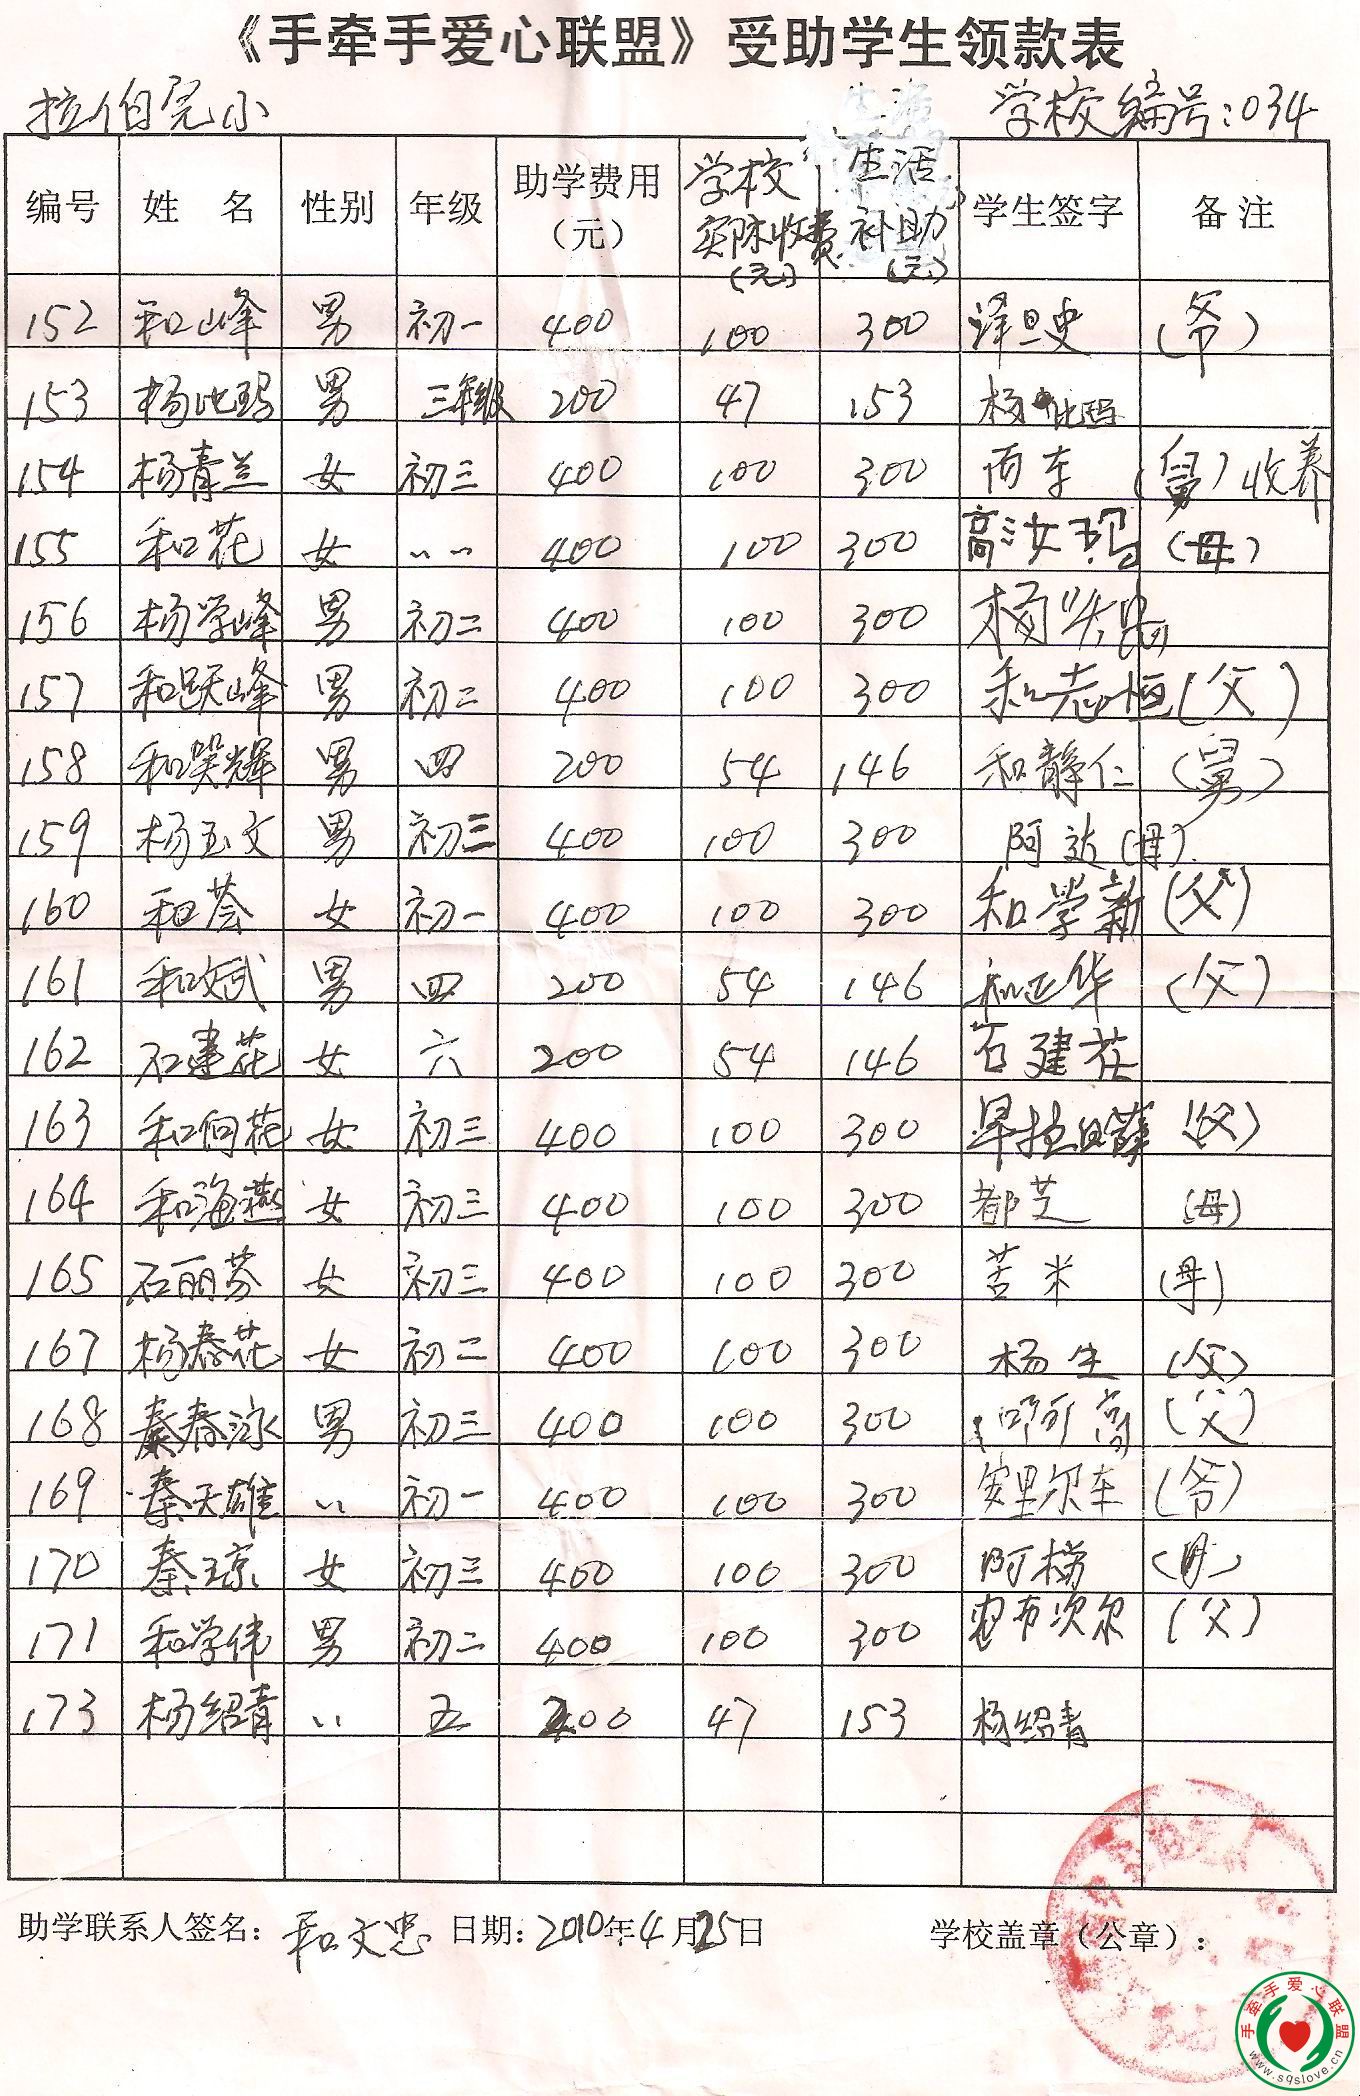 《手牵手爱心联盟》受助学生领款表
拉伯完小 学校编号:034
编号 姓 名 性别 年级 助学费用（元） 学校实际收费(元) 生活补助(元) 学生签字 备注
152 和山峰 男 初一 400 100 300 泽旦史 (爷)
153 杨比玛 男 三年级 200 47 153 杨比玛
154 杨青兰 女 初三 400 100 300 而车 (舅)收养
155 和花 女 〃 400 100 300 高汝玛 (母)
156 杨学峰 男 初二 400 100 300 杨
157 和跃峰 男 初二 400 100 300 和志恒 (父)
158 和荣辉 男 四 200 54 146 和静仁 (舅)
159 杨玉文 男 初三 400 100 300 阿达 (母)
160 和荟 女 初一 400 100 300 和学新 (父)
161 和文武 男 四 200 54 146 和正华 (父)
162 石建花 女 六 200 54 146 石建花
163 和向花 女 初三 400 100 300 (父)
164 和海燕 女 初三 400 100 300 都芝 (母)
165 石丽芬 女 初三 400 100 300 苦米 (母)
167 杨春花 女 初二 400 100 300 杨生 (父)
168 秦春泳 男 初三 400 100 300 阿高 (父)
169 秦天雄 〃 初一 400 100 300 安里尔车 (爷)
170 秦琼 女 初三 400 100 300 阿梯 (母)
171 和学伟 男 初二 400 100 300 布次尔 (父)
173 杨绍青 〃 五 200 47 153 杨绍青
助学联系人签名：和文忠 日期：2010年4月25日 学校盖章（公章）：
手牵手爱心联盟
www.sqslove.cn